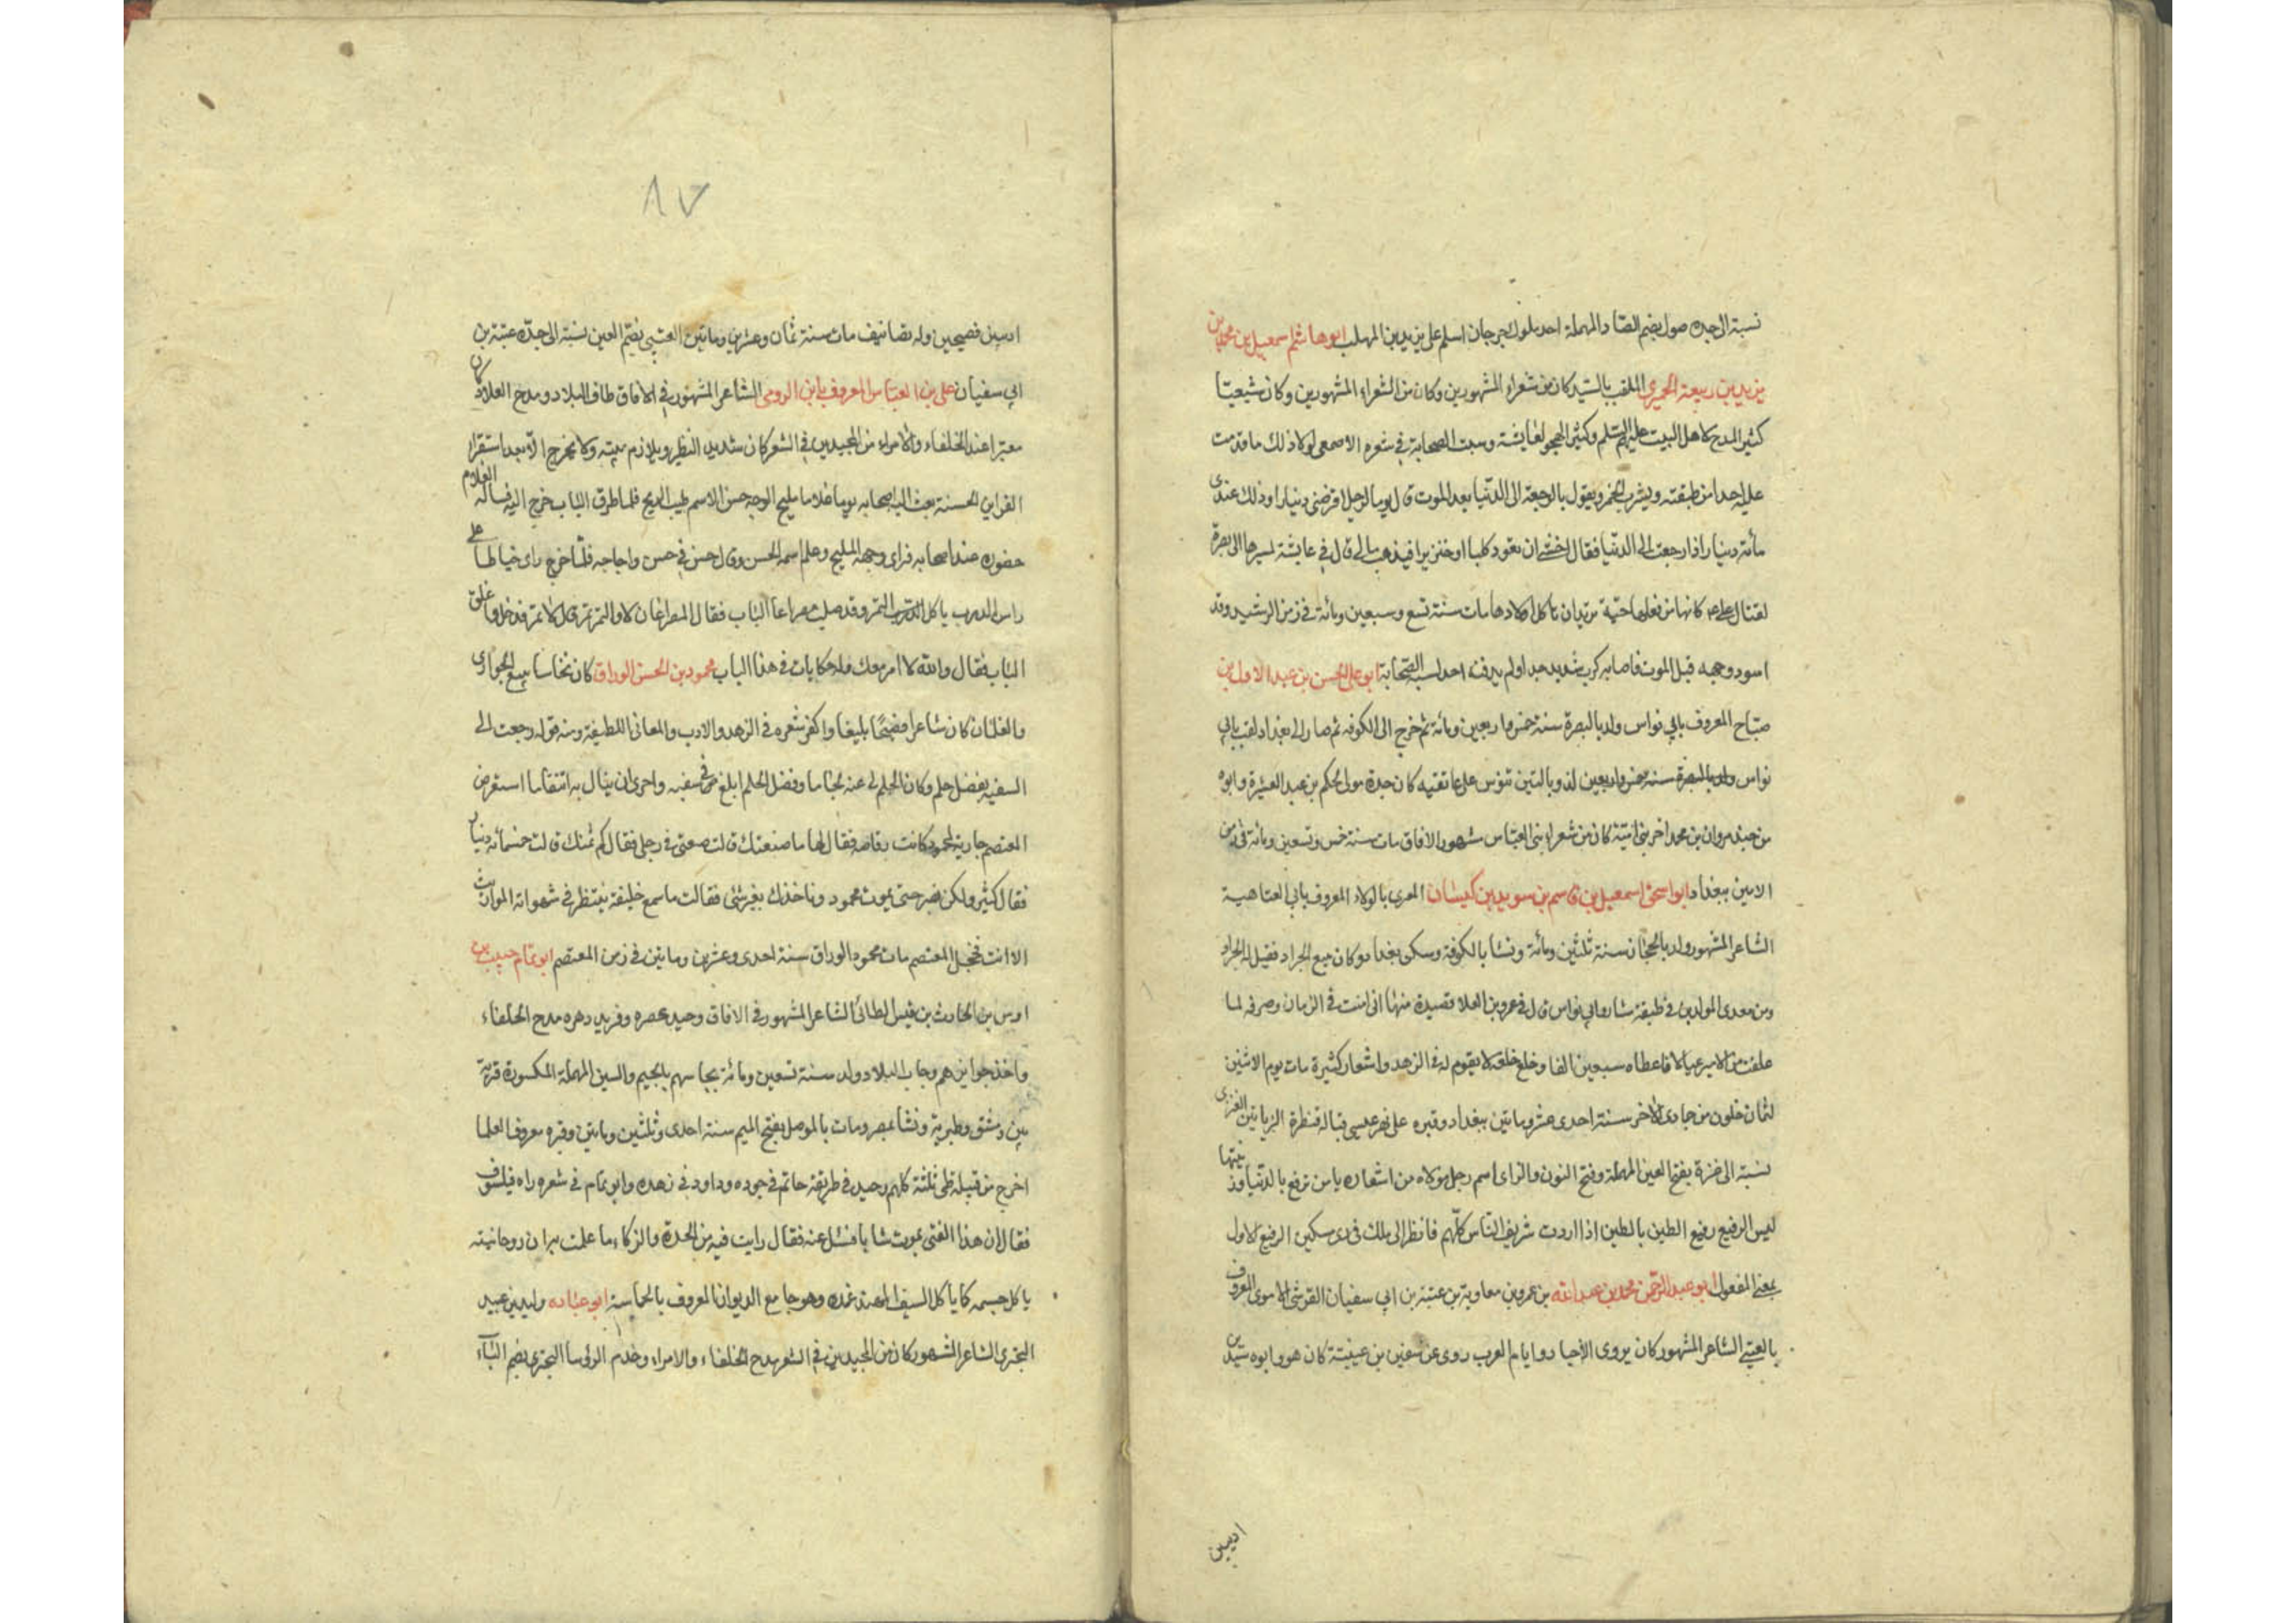 نسبة الى جده صول بضم الصاد المهملة احد ملوك جرجان اسلم على يزيد بن المهلب ابوهاشم اسمعيل بن محمد بن
يزيد بن ربيعة الحميرى الملقب بالسيد كان من شعراء المشهورين وكان من الشعراء المشهورين وكان شيعيا
كثير المدح لاهل البيت عليهم السلم وكثير الهجو لعايشة وسب الصحابة فى شعره الاصمعى لولا ذلك ما قدمت
عليه احدا من طبقته ويشرب الخمر ويقول بالرجعة الى الدنيا بعد الموت قال يوما لرجل اقرضنى دينارا وذلك عندى
مائة دينار اذا رجعت الى الدنيا فقال اخشى ان تعود كلبا او خنزيرا فيذهب مالى قال فى عايشة لسيرها الى بصرة
لقتال على ع كانها من فعلها حية تريدان تاكل اولادها مات سنة تسع وسبعين ومائة فى زمن الرشيد وقد
اسود وجهه قبل الموت فاصابه كرب شديد جدا ولم يدفنه احد لسبه الصحابة ابو على الحسن بن عبد الاول بن
صباح المعروف بابي نواس ولد بالبصرة سنة خمس واربعين ومائة ثم خرج الى الكوفه ثم صار الى بغداد لقب بابي
نواس ولد بالبصرة سنة خمس واربعين لذوبالتين تنوس على عاتقيه كان جده مولى الحكم بن عبد العشيرة وابوه
من جند مروان بن محمد اخر بنى امية كان من شعراء بنى العباس مشهور الافاق مات سنة خمس وتسعين ومائة فى زمن
الامين ببغداد ابو اسحق اسمعيل بن قاسم بن سويد بن كيسان العزى بالولاء المعروف بابي العتاهية
الشاعر المشهور ولد بالحجاز سنة ثلثين ومائة ونشا بالكوفة وسكن بغداد وكان يبيع الجرار فقيل له الجرار
ومن مقدمى المولدين فى طبقة بشار وابي نواس قال فى عمرو بن العلا قصيدة منها انى امنت فى الزمان وصرفه لما
علقت من الامير حبالا فاعطاه سبعين الفا وخلع خلقه لا يقوم له فى الزهد واشعار كثيرة مات يوم الاثنين
لثمان خلون من جمادى الاخر سنة احدى عشر وماتين ببغداد وقبره على نهر عيسى قبالة قنطرة الزياتين العنزى
نسبة الى عنزة بفتح العين المهملة وفتح النون والزاى اسم رجل مولاه من اشعاره يا من ترفع بالدنيا وزينتها
ليس الرفيع رفيع الطين بالطين اذا اردت شريف الناس كلهم فانظر الى ملك فى زى مسكين الرفيع الاول
بمعنى المفعول ابو عبد الرحمن محمد بن عبد الله بن عمرو بن معاوية بن عتبة بن ابي سفيان القرشى الاموى المعروف
بالعتبى الشاعر المشهور كان يروى الاخبار وايام العرب روى عن سفين بن عيينة كان هو وابوه سيدين
اديبين
٨٧
اديبين فصيحين وله تصانيف مات سنة ثمان وعشرين وماتين العتبى بضم العين نسبة الى جده عتبة بن
ابي سفيان على بن العباس المعروف بابن الرومى الشاعر المشهور فى الافاق طاف البلاد ومدح العلاء كان
معتبرا عند الخلفاء والامراء من المجيدين فى الشعر كان شديد التطير ويلازم بيته ولا يخرج الا بعد استقرار
القراين الحسنة بعث اليه اصحابه يوما غلاما مليح الوجه حسن الاسم طيب الريح فلما طرق الباب خرج اليه فساله الغلام
حضوره عند اصحابه فراى وجهه المليح وعلم اسمه الحسن وقال حسن فى حسن واجابه فلما خرج راى خياطا على
راس الدرب ياكل التمر وقد صلب مصراعا الباب فقال المصراعان لا والتمر تمر قال لا تمر فدخل واغلق
الباب فقال والله لا امر معك وله حكايات فى هذا الباب محمود بن الحسن الوراق كان نخاسا يبيع الجوارى
والغلمان كان شاعرا فصيحا بليغا واكثر شعره فى الزهد والادب والمعانى اللطيفة ومنه قوله رجعت الى
السفيه بفضل حلم وكان الحلم لى عنه لجاما وفضل الحلم ابلغ فى سفيه واحرى ان ينال به انتقاما استعرض
المعتصم جارية لمحمود كانت رقاصه فقال لها ما صنعتك قالت صنعتى فى رجلى فقال كم ثمنك قالت خمسمائه دينار
فقال كثير ولكن نصبر حتى يموت محمود وناخذك بغير شئ فقالت ما سمع خليفة ينتظر فى شهواته الموارث
الا انت فخجل المعتصم مات محمود الوراق سنة احدى وعشرين وماتين فى زمن المعتصم ابو تمام حبيب بن
اوس بن الحارث بن قيس الطائى الشاعر المشهور فى الافاق وحيد عصره وفريد دهره مدح الخلفاء
واخذ جوايزهم وجاب البلاد ولد سنة تسعين ومائة بجاسم بالجيم والسين المهملة المكسورة قرية
بين دمشق وطبرية ونشا بمصر ومات بالموصل بفتح الميم سنة احدى وثلثين وماتين وقبره معروف العلما
اخرج من قبيلة طى ثلثة كلهم وحيد فى طريقته حاتم فى جوده وداود فى زهده وابو تمام فى شعره راه فيلسوف
فقال ان هذا الفتى يموت شابا فسئل عنه فقال رايت فيه من الحدة والزكاء ما علمت به ان روحانيته
ياكل جسمه كما ياكل السيف المهند غمده وهو جامع الديوان المعروف بالحماسة ابو عباده وليد بن عبيد
البحترى الشاعر المشهور كان من المجيدين فى الشعر مدح الخلفاء والامراء وخدم الرؤسا البحترى بضم الباء